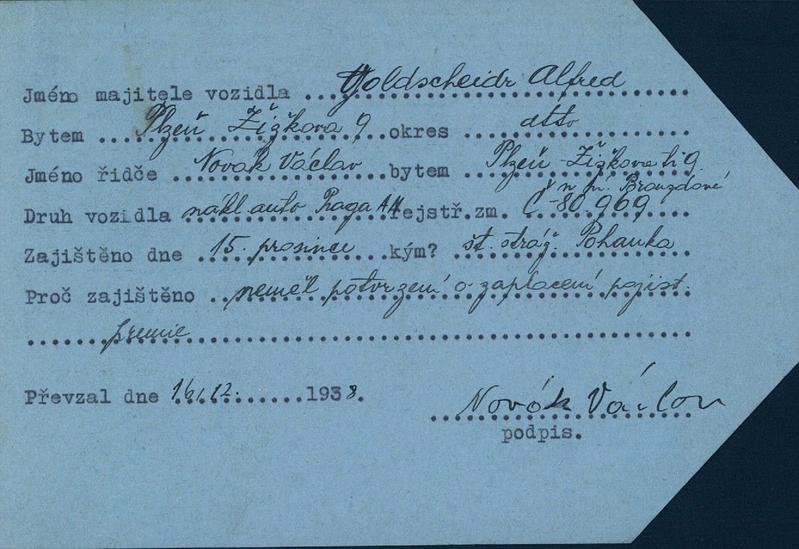 Jméno majitele vozidla ... Goldscheidr Alfred
Bytem ... Plzeň Žižkova 9 okres ... dtto
Jméno řidiče Novák Václav bytem Plzeň Žižkova tř 9
Druh vozidla nákl. auto Praga AN rejstř.zm. Č-80.969
Zajištěno dne 15. prosince kým? st. stráž. Pohanka
Proč zajištěno neměl potvrzení o zaplacení pojist.
premie
Převzal dne 16./12. 1938.
Novák Václav
podpis.